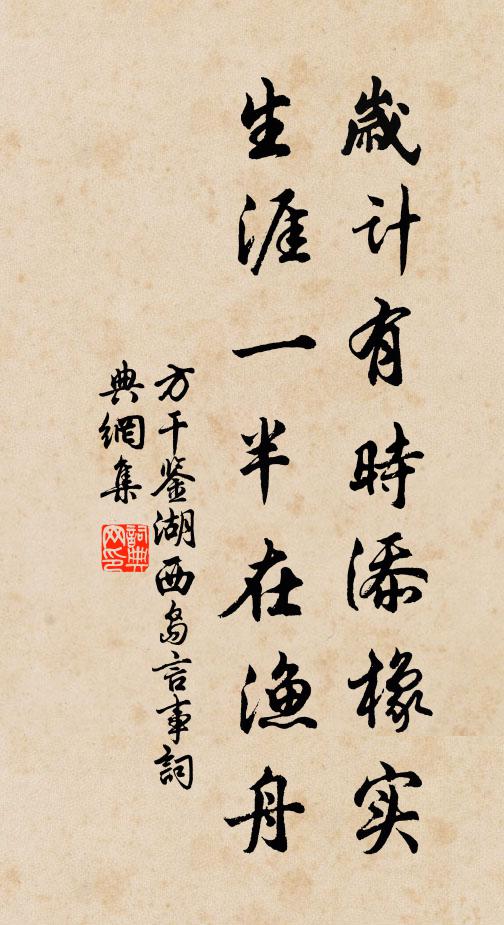 歲计有時添橡实
生涯一半在渔舟
方干鉴湖西岛言事詞
典網集
詞典网印